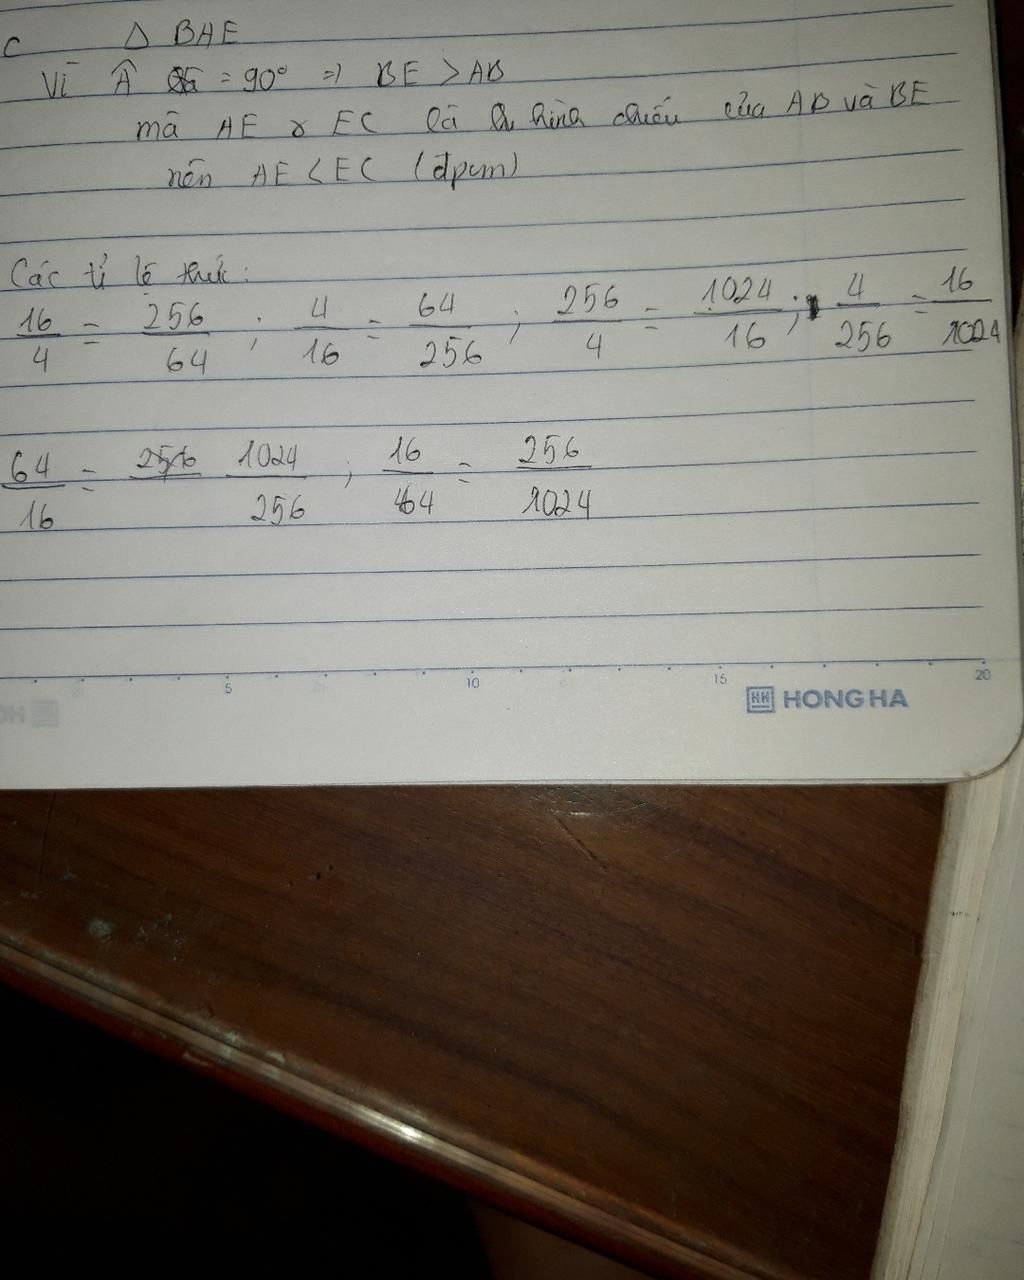 c Δ BAE
Vì Â = 90° => BE > AB
mà AE & EC là hình chiếu của AB và BE
nên AE < EC (đpcm)
Các tỉ lệ thức:
16/4 = 256/64 ; 4/16 = 64/256 ; 256/4 = 1024/16 ; 4/256 = 16/1024
64/16 = 1024/256 ; 16/64 = 256/1024
5 10 15 20
HH HONG HA